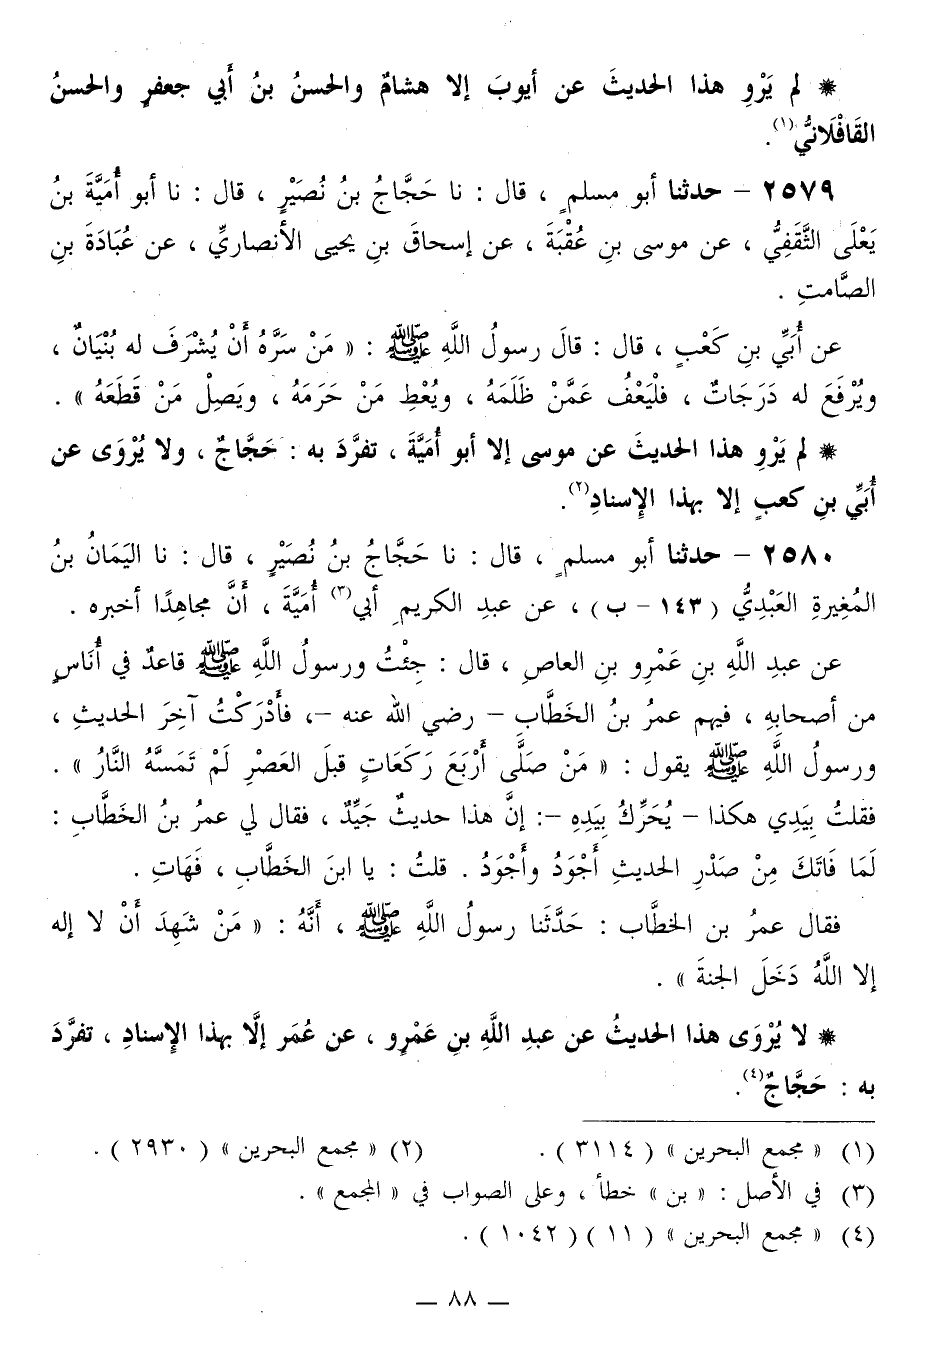 * لم يَرْوِ هذا الحديثَ عن أيوبَ إلا هشامٌ والحسنُ بنُ أَبي جعفرٍ والحسنُ
القَافْلَانيُّ(١).
٢٥٧٩ – حدثنا أبو مسلمٍ ، قال : نا حَجَّاجُ بنُ نُصَيْرٍ ، قال : نا أبو أُمَيَّةَ بنُ
يَعْلَى الثَّقَفِيُّ ، عن موسى بنِ عُقْبَةَ ، عن إسحاقَ بنِ يحيى الأنصاريِّ ، عن عُبَادَةَ بنِ
الصَّامتِ .
عن أُبَيِّ بنِ كَعْبٍ ، قال : قالَ رسولُ اللَّهِ ﷺ : « مَنْ سَرَّهُ أَنْ يُشْرَفَ له بُنْيَانٌ ،
ويُرْفَعَ له دَرَجَاتٌ ، فلْيَعْفُ عَمَّنْ ظَلَمَهُ ، ويُعْطِ مَنْ حَرَمَهُ ، ويَصِلْ مَنْ قَطَعَهُ » .
* لم يَرْوِ هذا الحديثَ عن موسى إلا أبو أُمَيَّةَ ، تفرَّدَ به : حَجَّاجٌ ، ولا يُرْوَى عن
أُبَيِّ بنِ كعبٍ إلا بهذا الإِسنادِ(٢).
٢٥٨٠ – حدثنا أبو مسلمٍ ، قال : نا حَجَّاجُ بنُ نُصَيْرٍ ، قال : نا اليَمَانُ بنُ
المُغيرةِ العَبْدِيُّ ( ١٤٣ – ب ) ، عن عبدِ الكريمِ أبي(٣) أُمَيَّةَ ، أَنَّ مجاهدًا أخبره .
عن عبدِ اللَّهِ بنِ عَمْرِو بنِ العاصِ ، قال : جِئْتُ ورسولُ اللَّهِ ﷺ قاعدٌ في أُنَاسٍ
من أصحابِهِ ، فيهم عمرُ بنُ الخَطَّابِ – رضي الله عنه –، فأَدْرَكْتُ آخِرَ الحديثِ ،
ورسولُ اللَّهِ ﷺ يقول : « مَنْ صَلَّى أَرْبَعَ رَكَعَاتٍ قبلَ العَصْرِ لَمْ تَمَسَّهُ النَّارُ » .
فقلتُ بِيَدِي هكذا – يُحَرِّكُ بِيَدِهِ –: إنَّ هذا حديثٌ جَيِّدٌ ، فقال لي عمرُ بنُ الخطَّابِ :
لَمَا فَاتَكَ مِنْ صَدْرِ الحديثِ أَجْوَدُ وأَجْوَدُ . قلتُ : يا ابنَ الخَطَّابِ ، فَهَاتِ .
فقال عمرُ بن الخطَّاب : حَدَّثَنا رسولُ اللَّهِ ﷺ ، أَنَّهُ : « مَنْ شَهِدَ أَنْ لا إله
إلا اللَّهُ دَخَلَ الجنةَ » .
* لا يُرْوَى هذا الحديثُ عن عبدِ اللَّهِ بنِ عَمْرٍو ، عن عُمَر إلَّا بهذا الإِسنادِ ، تفرَّدَ
به : حَجَّاجٌ(٤).
(١) « مجمع البحرين » ( ٣١١٤ ) . (٢) « مجمع البحرين » ( ٢٩٣٠ ) .
(٣) في الأصل : « بن » خطأ ، وعلى الصواب في « المجمع » .
(٤) « مجمع البحرين » ( ١١ ) ( ١٠٤٢ ) .
— ٨٨ —